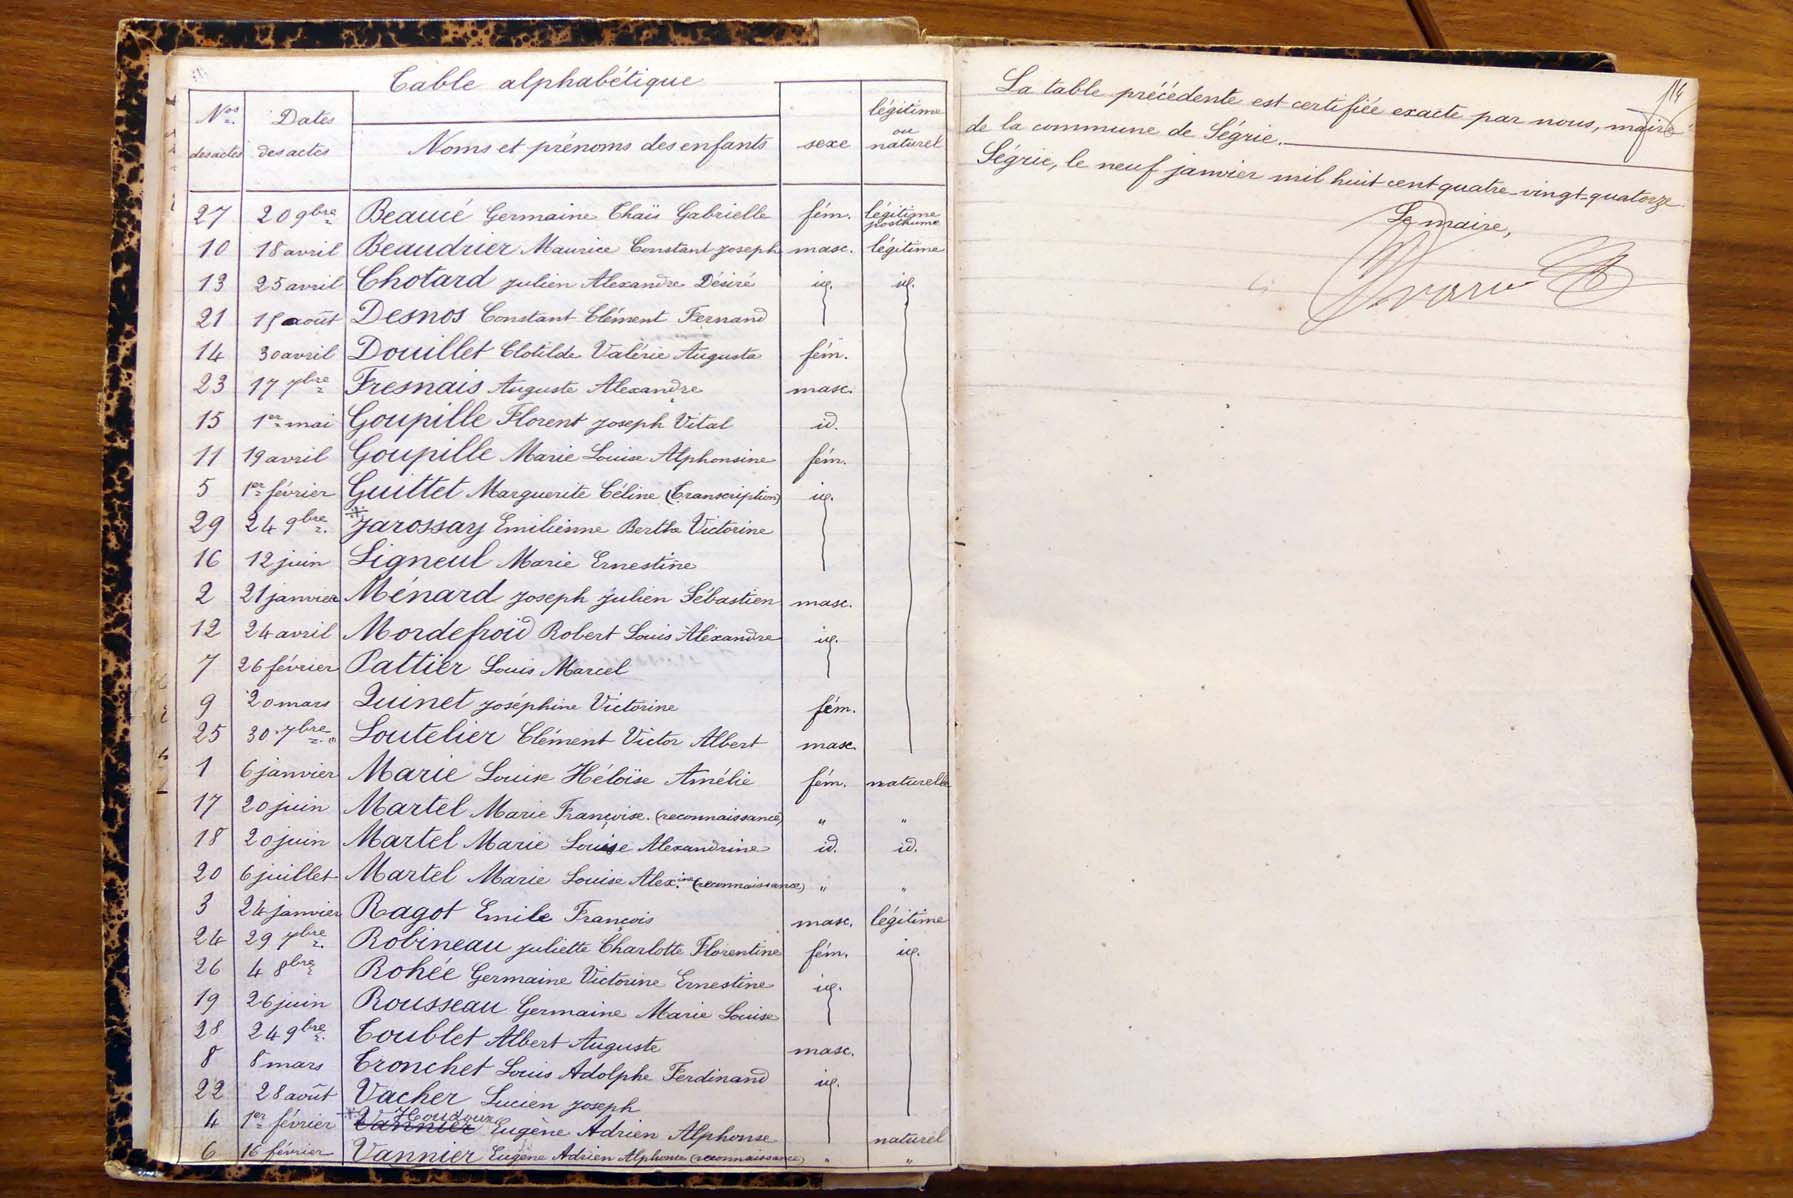 Table alphabétique
Nos des actes
Dates des actes
Noms et prénoms des enfants
sexe
légitime ou naturel
27 20 9bre Beaucé Germaine Thaïs Gabrielle fém. légitime posthume
10 18 avril Beaudrier Maurice Constant Joseph masc. légitime
13 25 avril Chotard Julien Alexandre Désiré id. id.
21 15 août Desnos Constant Clément Fernand
14 30 avril Douillet Clotilde Valérie Augusta fém.
23 17 7bre Fresnais Auguste Alexandre masc.
15 1er mai Goupille Florent Joseph Vital id.
11 19 avril Goupille Marie Louise Alphonsine fém.
5 1er février Guittet Marguerite Céline (Transcription) id.
29 24 9bre * Jarossay Emilienne Berthe Victorine
16 12 juin Ligneul Marie Ernestine
2 21 janvier Ménard Joseph Julien Sébastien masc.
12 24 avril Mordefroid Robert Louis Alexandre id.
7 26 février Pattier Louis Marcel
9 20 mars Quinet Joséphine Victorine fém.
25 30 7bre Loutelier Clément Victor Albert masc.
1 6 janvier Marie Louise Héloïse Amélie fém. naturelle
17 20 juin Martel Marie Françoise. (reconnaissance) " "
18 20 juin Martel Marie Louise Alexandrine id. id.
20 6 juillet Martel Marie Louise Alex.ine (reconnaissance) " "
3 24 janvier Ragot Emile François masc. légitime
24 29 7bre Robineau Juliette Charlotte Florentine fém. id.
26 4 8bre Rohée Germaine Victorine Ernestine id.
19 26 juin Rousseau Germaine Marie Louise
28 24 9bre Toublet Albert Auguste masc.
8 8 mars Tronchet Louis Adolphe Ferdinand id.
22 28 août Vacher Lucien Joseph
4 1er février * Vannier Houdoux Eugène Adrien Alphonse naturel
6 16 février Vannier Eugène Adrien Alphonse (reconnaissance) " "
114
La table précédente est certifiée exacte par nous, maire
de la commune de Ségrie.
Ségrie, le neuf janvier mil huit cent quatre-vingt-quatorze.
Le maire,